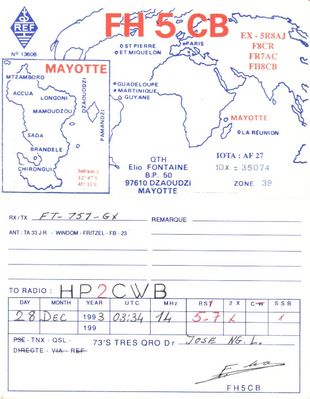 FH 5 CB
REF
N° 13606
EX - 5R8AJ
F8CR
FR7AC
FH8CB
ST PIERRE
ET MIQUELON
PARIS
GUADELOUPE
MARTINIQUE
GUYANE
MAYOTTE
LA REUNION
MAYOTTE
MTZAMBORO
ACCUA
LONGONI
MAMOUDZOU
DZAOUDZI
PAMANDZI
SADA
BRANDELE
CHIRONGUI
QTH
Elio FONTAINE
B.P. 50
97610 DZAOUDZI
MAYOTTE
IOTA : AF 27
10X = 35074
ZONE 39
RX/TX FT-757-GX REMARQUE
ANT : TA 33 J R - WINDOM - FRITZEL - FB - 23
TO RADIO : HP2CWB
DAY MONTH YEAR UTC MHz RST 2 X CW SSB
28 DEC 1993 03:34 14 5-7 X
199
PSE - TNX - QSL -
DIRECTE - VIA - REF
73'S TRES QRO Dr JOSE NG.L.
FH5CB